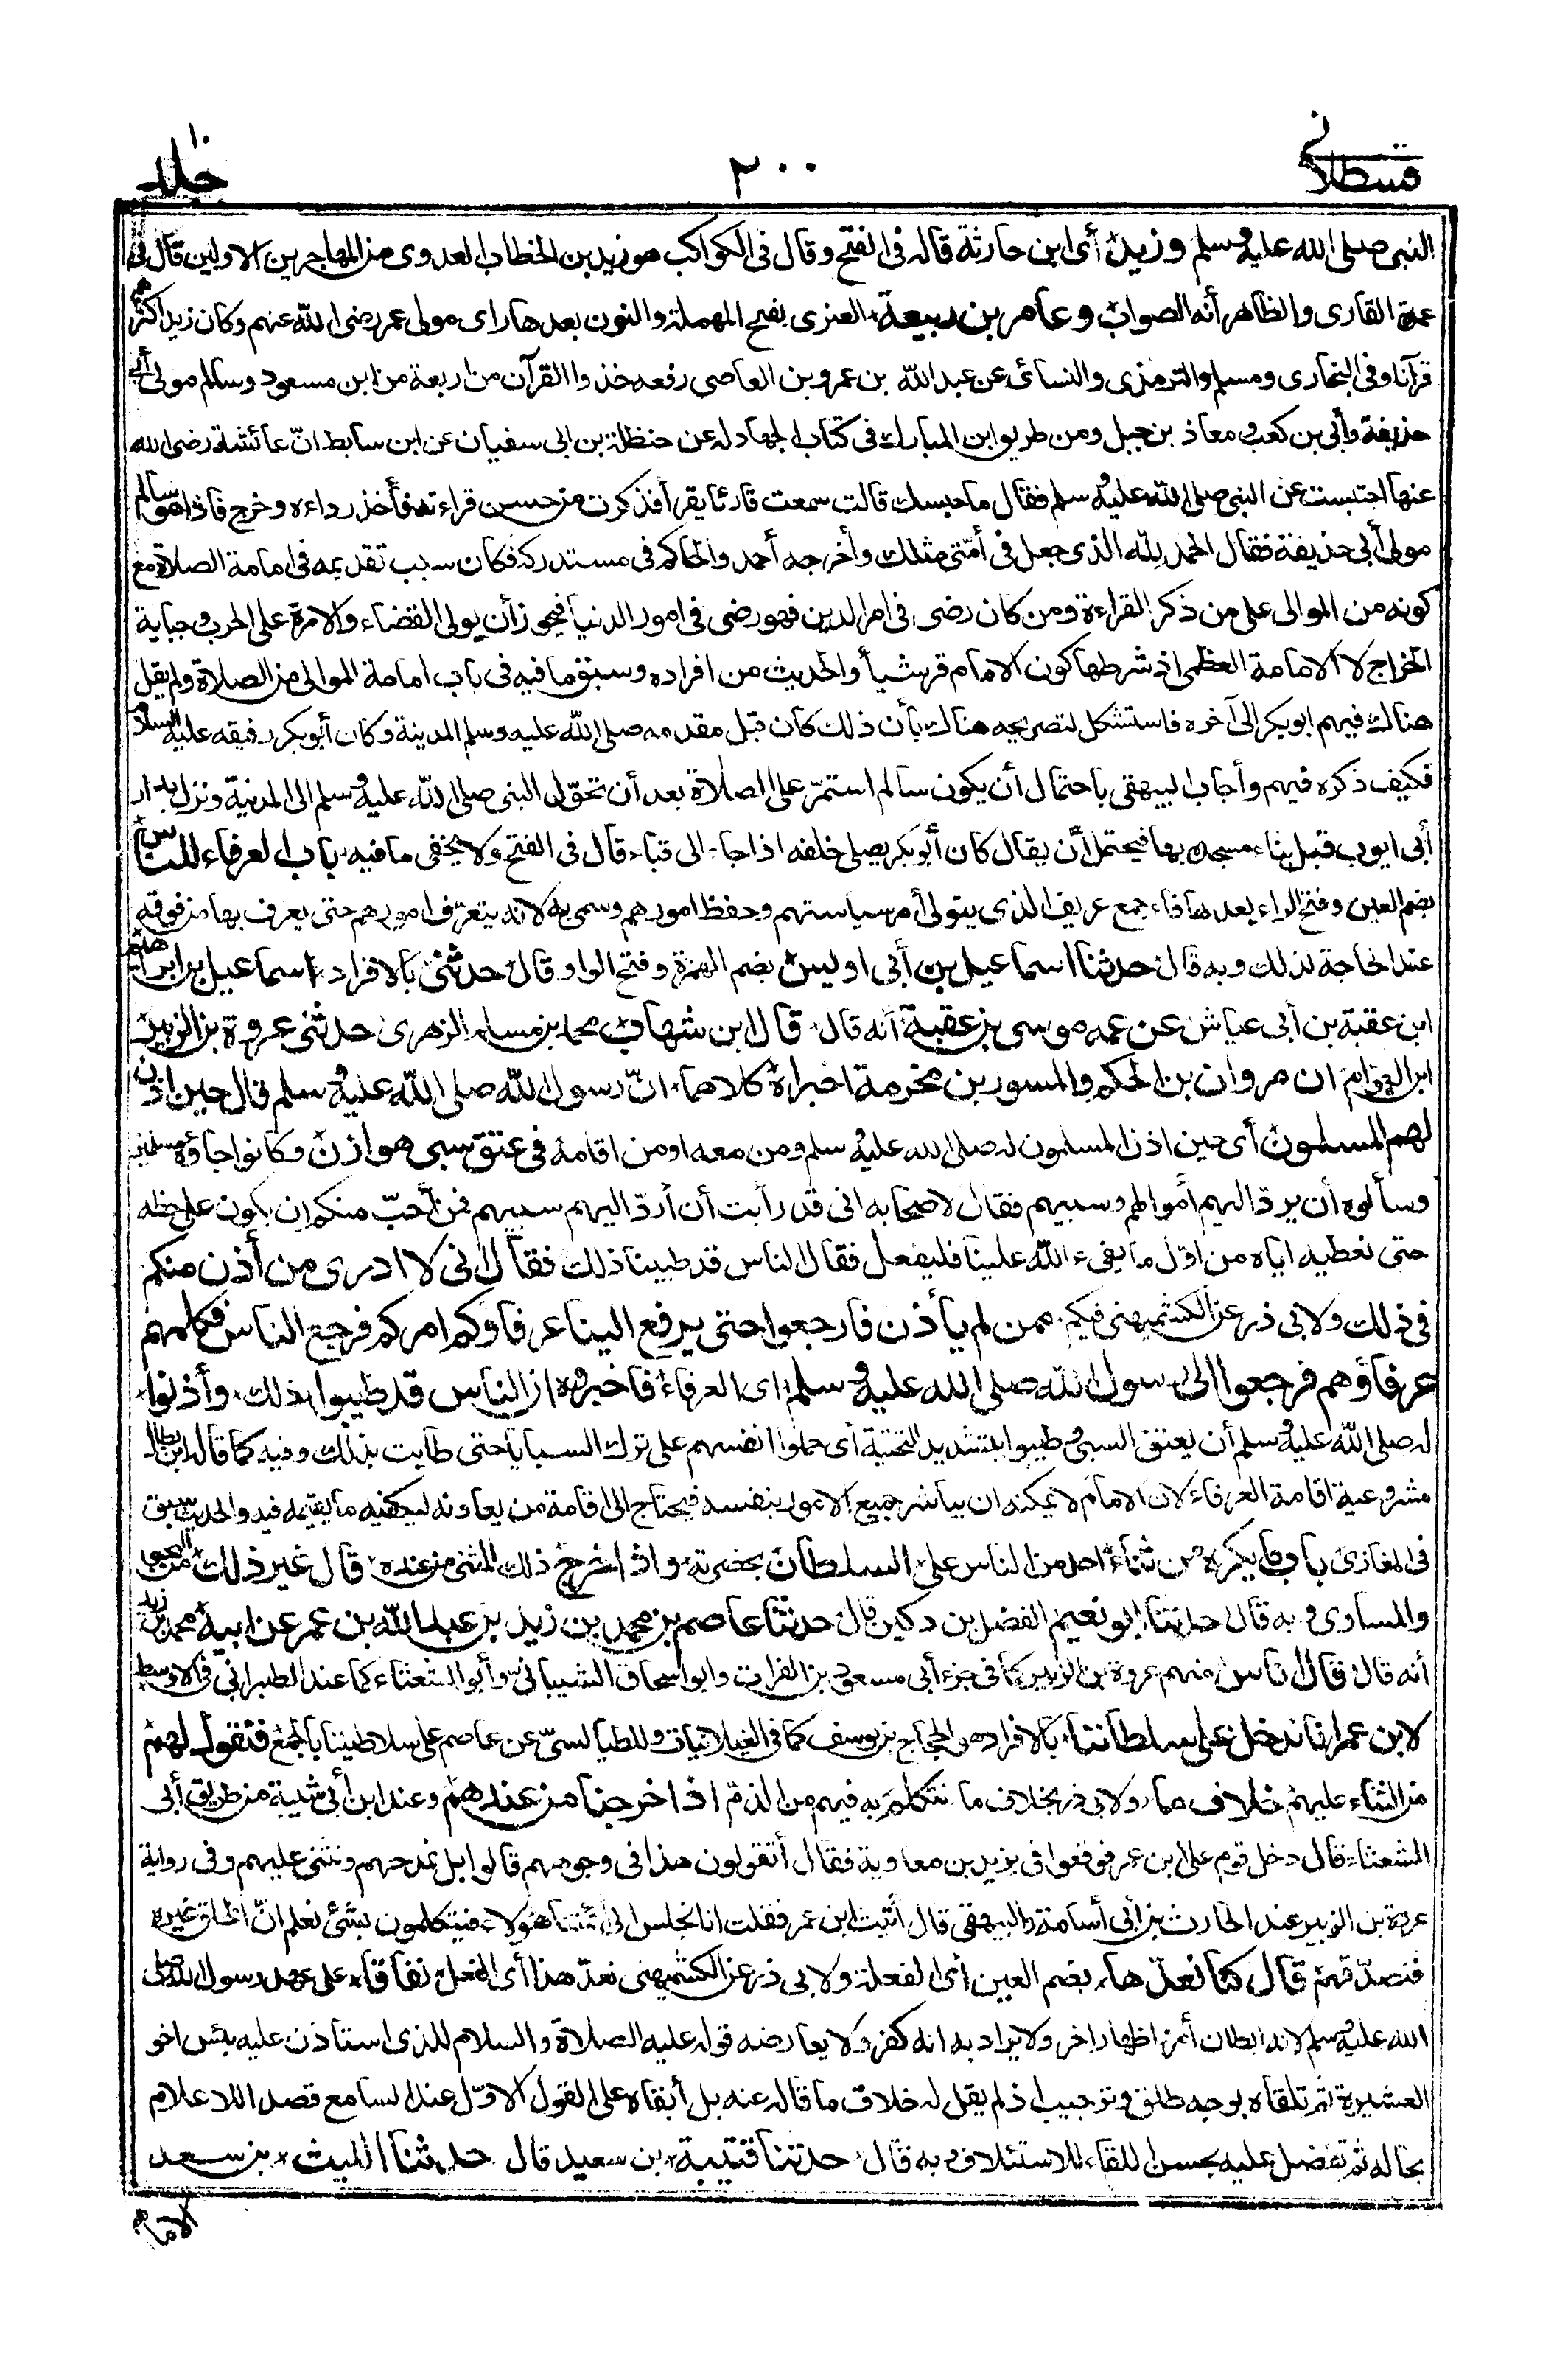 قسطلانى
٢٠٠
جلد ١٠
النبى صلى الله عليه وسلم وزيد أى ابن حارثة قاله فى الفتح وقال فى الكواكب هو زيد بن الخطاب العدوى من المهاجرين الاولين قال فى
عمدة القارى والظاهر أنه الصواب وعامر بن ربيعة العنزى بفتح المهملة والنون بعدها زاى مولى عمر رضى الله عنهم وكان زيد اكثرهم
قرآنا وفى البخارى ومسلم والترمذى والنسائى عن عبد الله بن عمرو بن العاصى رفعه خذوا القرآن من اربعة من ابن مسعود وسالم مولى أبى
حذيفة وأبى بن كعب ومعاذ بن جبل ومن طريق ابن المبارك فى كتاب الجهاد له عن حنظلة بن ابى سفيان عن ابن سابط انّ عائشة رضى الله
عنها احتبست عن النبى صلى الله عليه وسلم فقال ما حبسك قالت سمعت قارئا يقرأ فذكرت من حسن قراءته فأخذ رداءه وخرج فاذا هو سالم
مولى أبى حذيفة فقال الحمد لله الذى جعل فى أمّتى مثلك وأخرجه أحمد والحاكم فى مستدركه فكان سبب تقديمه فى امامة الصلاة مع
كونه من الموالى على من ذكر القراءة ومن كان رضى فى امر الدين فهو رضى فى امور الدنيا فيجوز أن يولى القضاء والامرة على الحرب وجباية
الخراج لا الامامة العظمى اذ شرطها كون الامام قرشيا والحديث من افراده وسبق ما فيه فى باب امامة الموالى من الصلاة ولم يقل
هناك فيهم ابو بكر الى آخره فاستشكل لتصريحه هناك بأن ذلك كان قبل مقدمه صلى الله عليه وسلم المدينة وكان أبو بكر رفيقه عليه السلام
فكيف ذكره فيهم وأجاب البيهقى باحتمال أن يكون سالم استمرّ على الصلاة بعد أن تحوّل النبى صلى الله عليه وسلم الى المدينة ونزل بدار
أبى ايوب قبل بناء مسجده بها فيحتمل أن يقال كان أبو بكر يصلى خلفه اذا جاء الى قباء قال فى الفتح ولا يخفى ما فيه باب العرفاء للناس
بضم العين وفتح الراء بعدها فاء جمع عريف الذى يتولى أمر سياستهم وحفظ امورهم وسمى به لانه يتعرّف امورهم حتى يعرف بها من فوقه
عند الحاجة لذلك وبه قال حدثنا اسماعيل بن أبى اويس بضم الهمزة وفتح الواو قال حدثنى بالافراد اسماعيل بن ابراهيم
ابن عقبة بن أبى عياش عن عمه موسى بن عقبة أنه قال قال ابن شهاب محمد بن مسلم الزهرى حدثنى عروة بن الزبير
ابن العوّام ان مروان بن الحكم والمسور بن مخرمة اخبراه كلاهما انّ رسول الله صلى الله عليه وسلم قال حين اذن
لهم المسلمون أى حين اذن المسلمون له صلى الله عليه وسلم ومن معه او من اقامه فى عتق سبى هوازن وكانوا جاؤه مسلمين
وسألوه أن يردّ اليهم أموالهم وسبيهم فقال لاصحابه انى قد رأيت أن أردّ اليهم سبيهم فمن أحبّ منكم ان يكون على حظه
حتى نعطيه اياه من اوّل ما يفىء الله علينا فليفعل فقال الناس قد طيبنا ذلك فقال انى لا ادرى من أذن منكم
فى ذلك ولابى ذر عن الكشميهنى فيكم ممن لم يأذن فارجعوا حتى يرفع الينا عرفاؤكم امركم فرجع الناس فكلمهم
عرفاؤهم فرجعوا الى رسول الله صلى الله عليه وسلم اى العرفاء فاخبروه ان الناس قد طيبوا ذلك وأذنوا
له صلى الله عليه وسلم أن يعتق السبى وطيبوا بتشديد التحتية أى حملوا انفسهم على ترك السبايا حتى طابت بذلك وفيه كما قاله ابن بطال
مشروعية اقامة العرفاء لان الامام لا يمكنه ان يباشر جميع الامور بنفسه فيحتاج الى اقامة من يعاونه ليكفيه ما يقيمه فيه والحديث سبق
فى المغازى باب ما يكره من ثناء احد من الناس على السلطان بحضرته واذا خرج ذلك المثنى من عنده قال غير ذلك من الهجو
والمساوى وبه قال حدثنا ابو نعيم الفضل بن دكين قال حدثنا عاصم بن محمد بن زيد بن عبد الله بن عمر عن ابيه محمد بن زيد
أنه قال قال ناس منهم عروة بن الزبير كما فى جزء أبى مسعود بن الفرات وابو اسحاق الشيبانى وأبو الشعثاء كما عند الطبرانى فى الاوسط
لابن عمر انا ندخل على سلطاننا بالافراد هو الحجاج بن يوسف كما فى الغيلانيات وللطيالسىّ عن عاصم على سلاطيننا بالجمع فنقول لهم
من الثناء عليهم خلاف ما ولابى ذر بخلاف ما نتكلم به فيهم من الذمّ اذا خرجنا من عندهم وعند ابن أبى شيبة من طريق أبى
الشعثاء قال دخل قوم على ابن عمر فوقعوا فى يزيد بن معاوية فقال أتقولون هذا فى وجوههم قالوا بل نمدحهم ونثنى عليهم وفى رواية
عروة بن الزبير عند الحارث بن أبى أسامة والبيهقى قال أتيت ابن عمر فقلت انا نجلس الى أئمتنا هؤلاء فيتكلمون بشئ نعلم انّ الحق غيره
فنصدّقهم قال كنا نعدّها بضم العين أى الفعلة ولابى ذر عن الكشميهنى نعدّ هذا أى الفعل نفاقا على عهد رسول الله صلى
الله عليه وسلم لانه ابطان أمر اظهار اخر ولا يراد به انه كفر ولا يعارضه قوله عليه الصلاة والسلام للذى استاذن عليه بئس اخو
العشيرة ثم تلقاه بوجه طلق وترحيب اذ لم يقل له خلاف ما قاله عنه بل أبقاه على القول الاوّل عند السامع قصد اللاعلام
بحاله ثم تفضل عليه بحسن اللقاء للاستئلاف وبه قال حدثنا قتيبة بن سعيد قال حدثنا الليث بن سعد
الامام